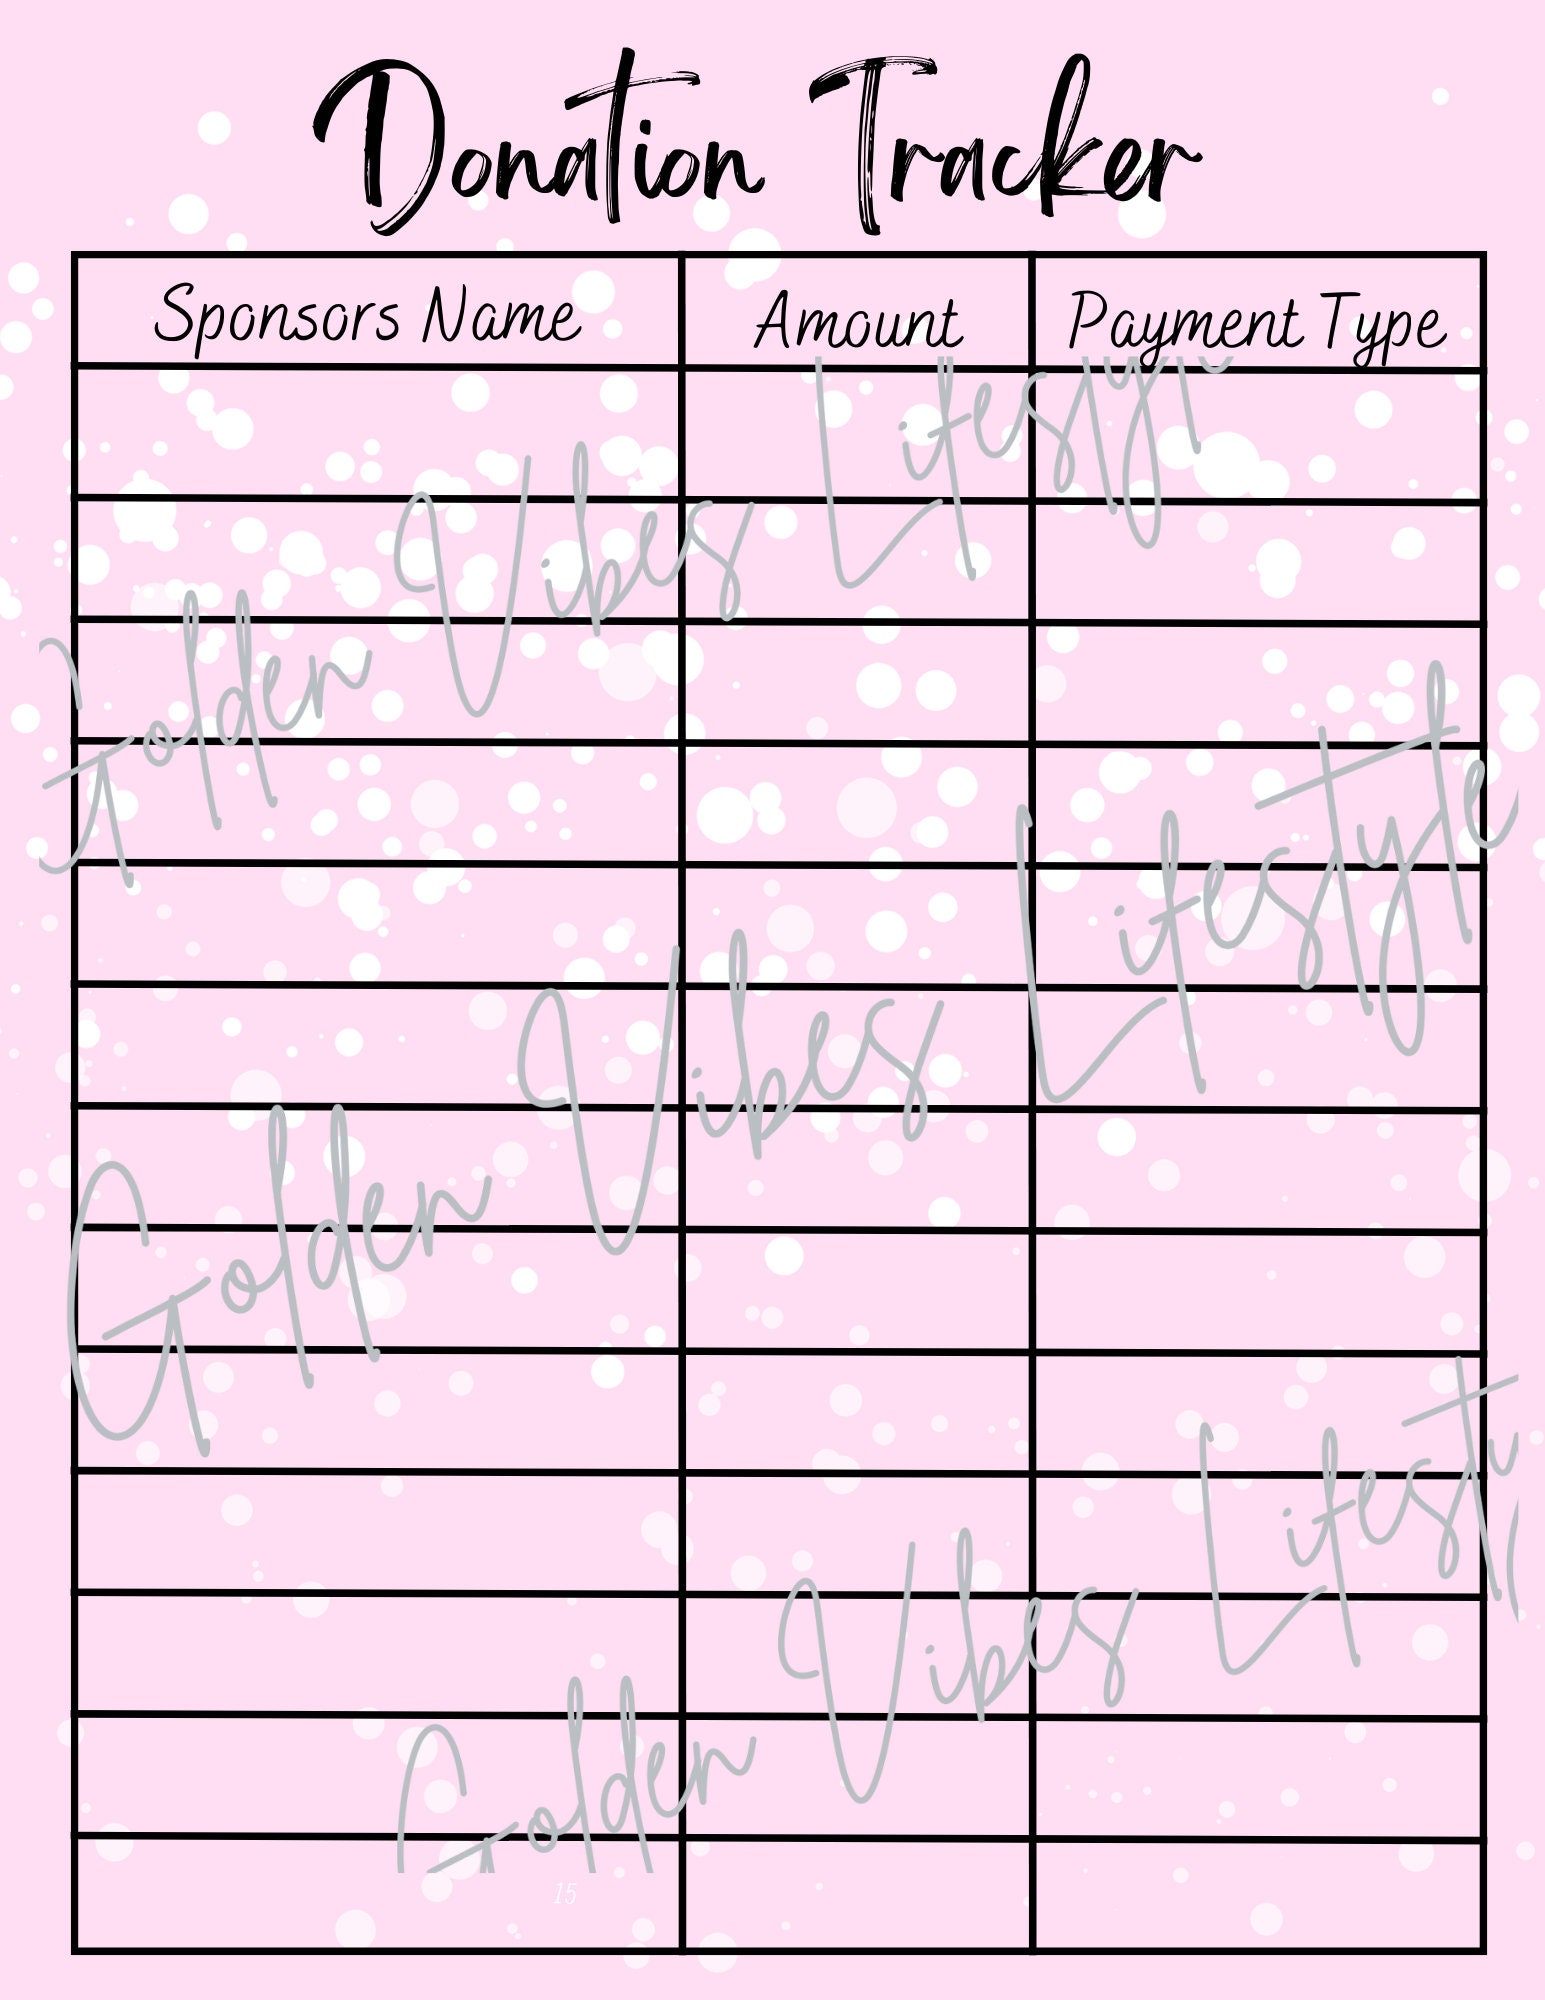 Donation Tracker
Sponsors Name Amount Payment Type
Lifestyl
Golden Vibes
Golden Vibes Lifestyle
Golden Vibes Lifesty
15